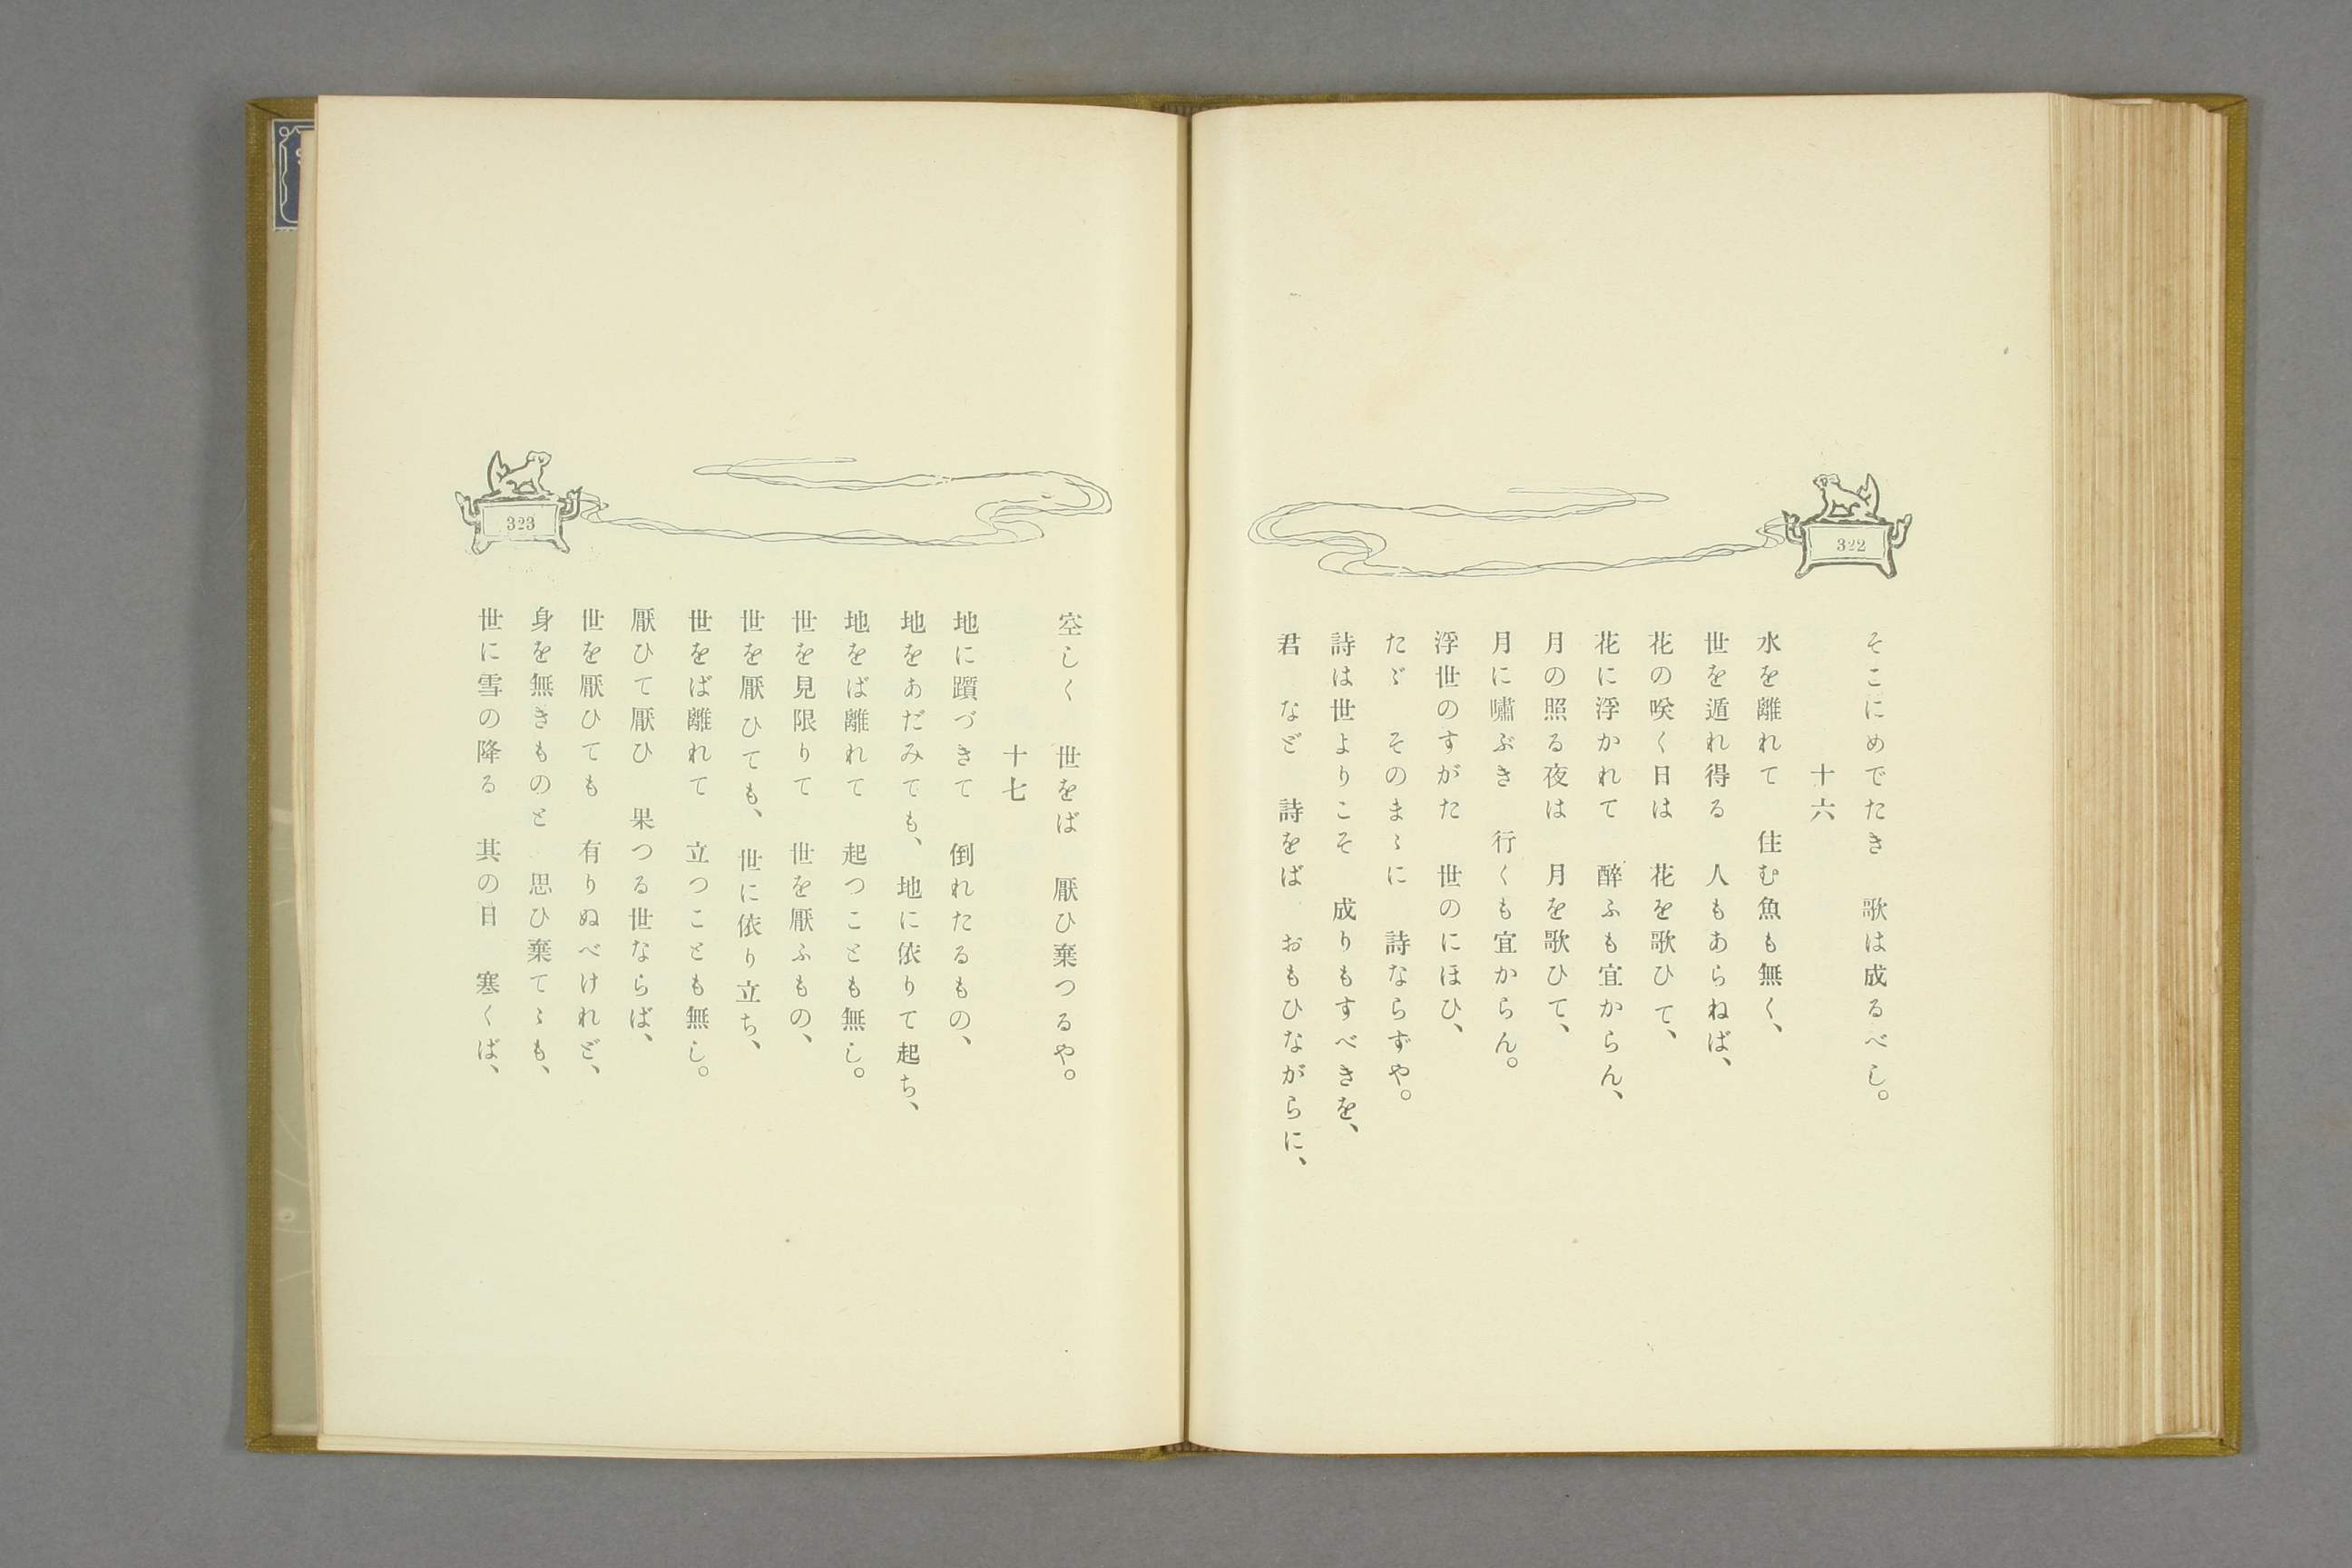 322
そこにめでたき　歌は成るべし。
十六
水を離れて　住む魚も無く、
世を遁れ得る　人もあらねば、
花の咲く日は　花を歌ひて、
花に浮かれて　醉ふも宜からん、
月の照る夜は　月を歌ひて、
月に嘯ぶき　行くも宜からん。
浮世のすがた　世のにほひ、
たゞ　そのまゝに　詩ならずや。
詩は世よりこそ　成りもすべきを、
君　など　詩をば　おもひながらに、
323
空しく　世をば　厭ひ棄つるや。
十七
地に躓づきて　倒れたるもの、
地をあだみても、地に依りて起ち、
地をば離れて　起つことも無し。
世を見限りて　世を厭ふもの、
世を厭ひても、世に依り立ち、
世をば離れて　立つことも無し。
厭ひて厭ひ　果つる世ならば、
世を厭ひても　有りぬべけれど、
身を無きものと　思ひ棄てゝも、
世に雪の降る　其の日　寒くば、